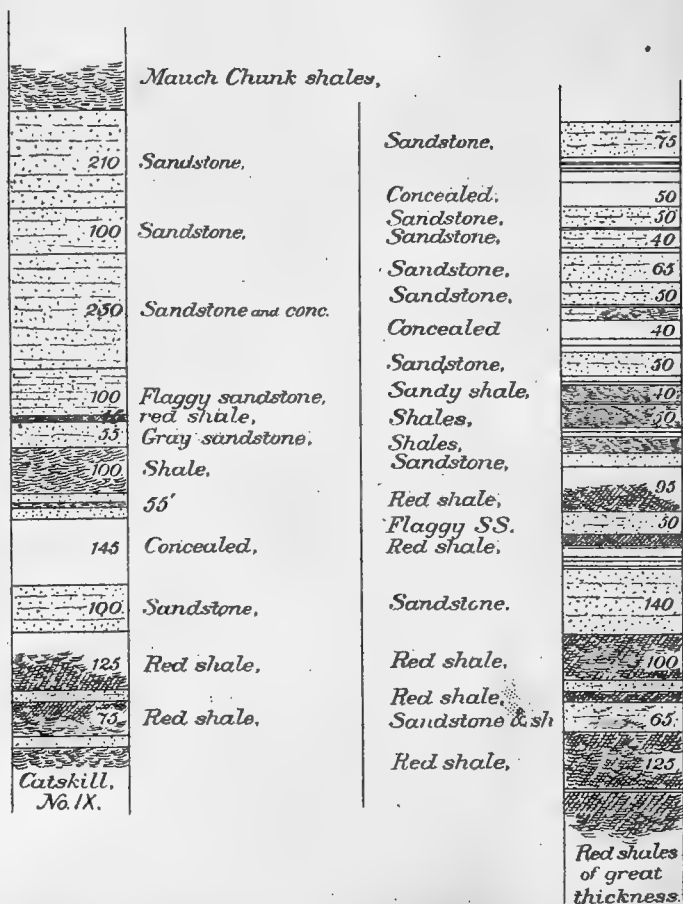 Mauch Chunk shales,
210 Sandstone,
100 Sandstone,
250 Sandstone and conc.
100 Flaggy sandstone,
red shale,
55 Gray sandstone,
100 Shale,
55'
145 Concealed,
100 Sandstone,
125 Red shale,
75 Red shale,
Catskill,
No. IX.
Sandstone, 75
Concealed, 50
Sandstone, 50
Sandstone, 40
Sandstone, 65
Sandstone, 50
Concealed 40
Sandstone, 50
Sandy shale, 40
Shales, 50
Shales,
Sandstone,
Red shale, 95
Flaggy SS. 50
Red shale,
Sandstone. 140
Red shale, 100
Red shale,
Sandstone & sh 65
Red shale, 125
Red shales
of great
thickness.